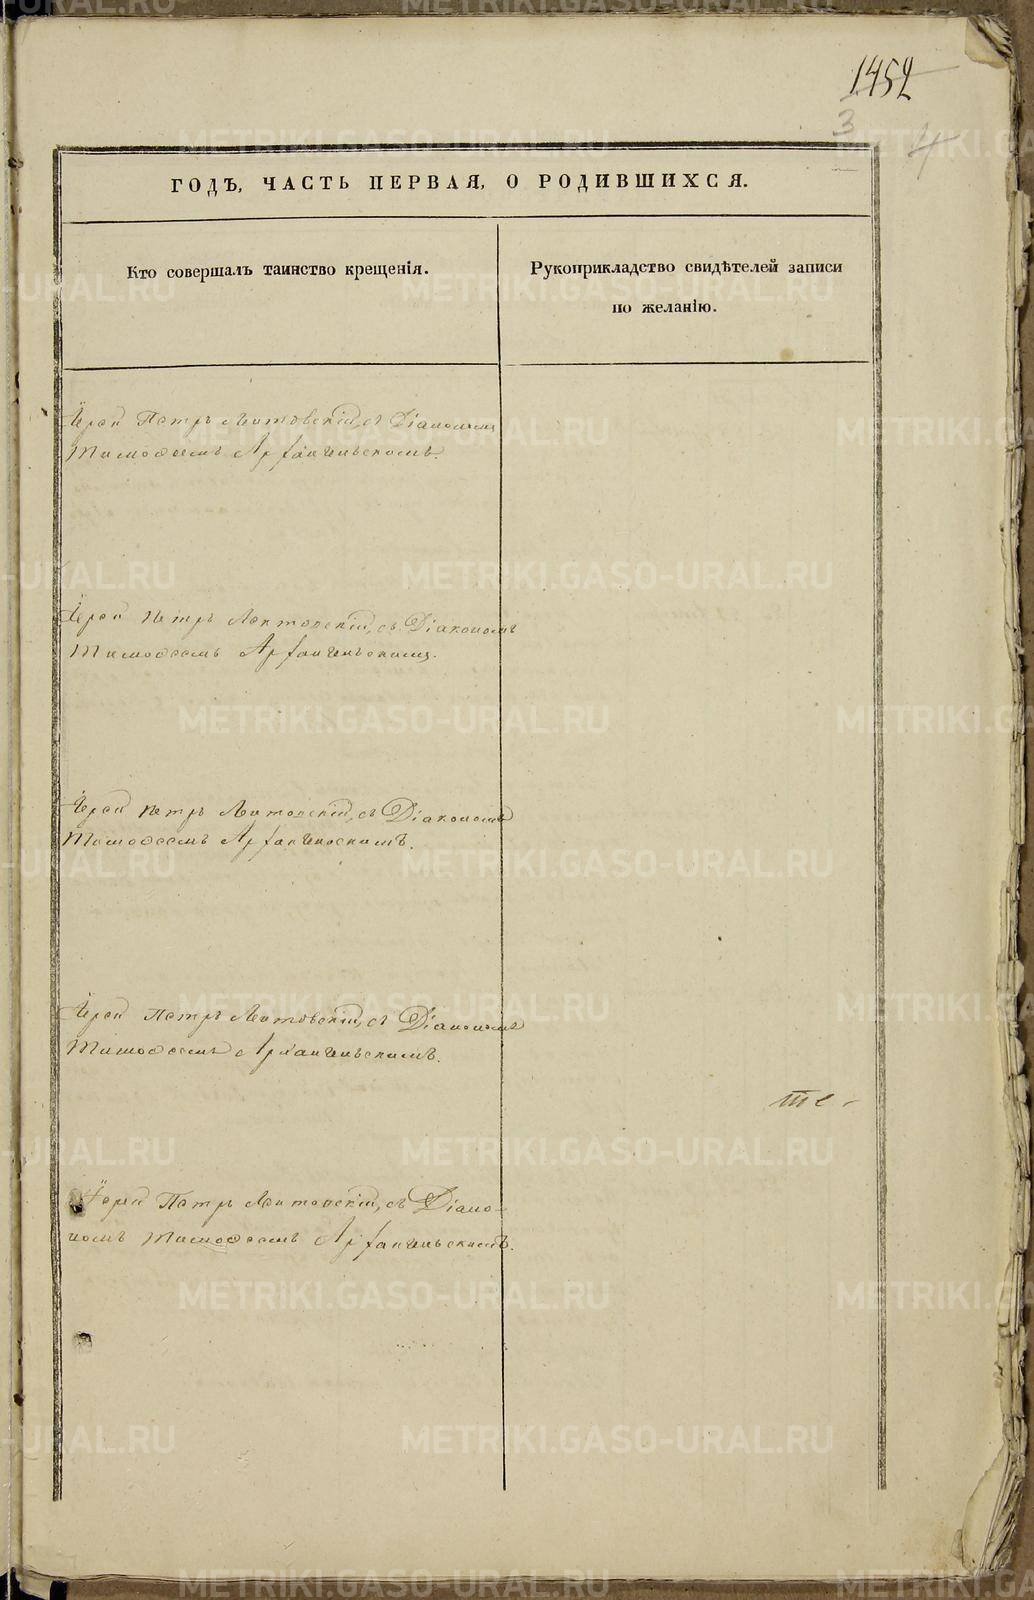 1452
3
4
ГОДЪ, ЧАСТЬ ПЕРВАЯ, О РОДИВШИХСЯ.
Кто совершалъ таинство крещенія.
Рукоприкладство свидѣтелей записи
по желанію.
Іерей Петръ Лектовскій, съ Діакономъ
Тимофеемъ Архангельскимъ.
Іерей Петръ Лектовскій, съ Діакономъ
Тимофеемъ Архангельскимъ.
Іерей Петръ Лектовскій, съ Діакономъ
Тимофеемъ Архангельскимъ.
Іерей Петръ Лектовскій, съ Діакономъ
Тимофеемъ Архангельскимъ.
Іерей Петръ Лектовскій, съ Діако-
номъ Тимофеемъ Архангельскимъ.
METRIKI.GASO-URAL.RU